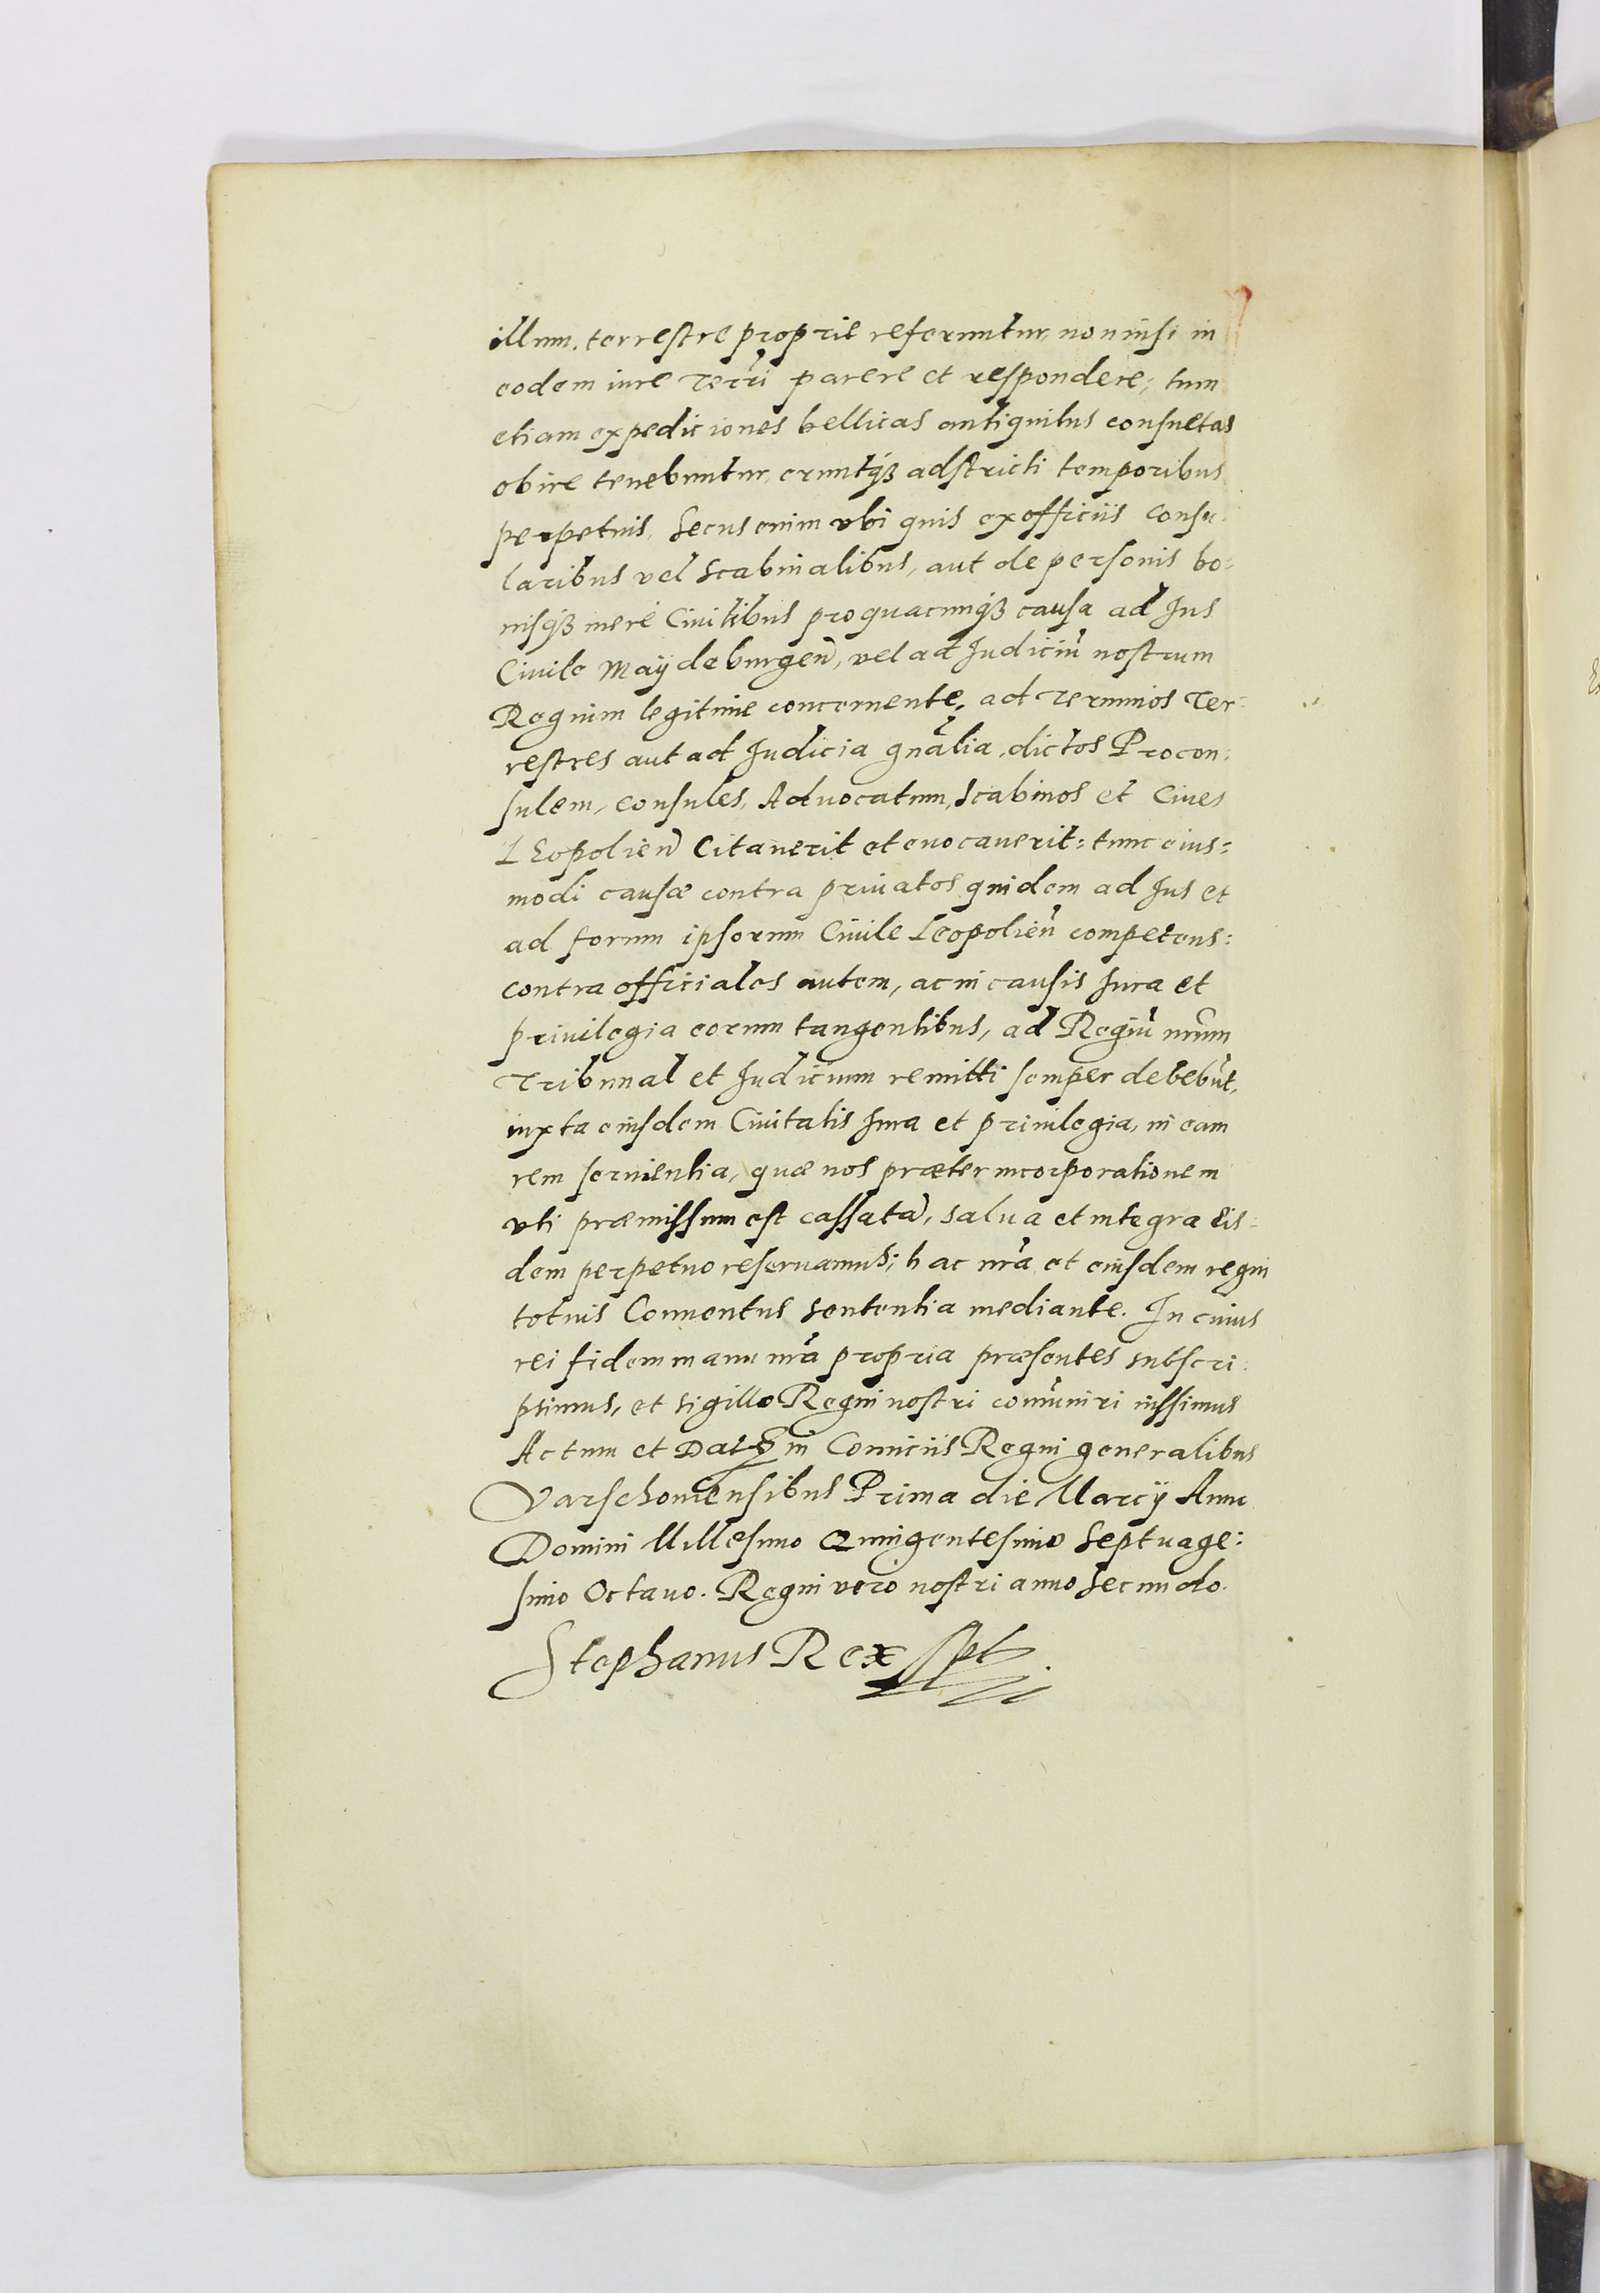 illum. terrestre proprie referuntur, non nisi in
eodem iure terrī parere et respondere; tum
etiam expediciones bellicas antiquitus consuetas
obire tenebuntur, eruntqȝ adstricti temporibus
perpetuis, Secus enim vbi quis ex officiis Consu-
laribus vel Scabinalibus, aut de personis bo-
nisqȝ mere Ciuilibus pro quacunqȝ causa ad Jus
Ciuile Maÿdeburgeñ, vel ad Judiciū nostrum
Regium legitime concernente, ad Terminos Ter-
restres aut ad Judicia gn̄alia, dictos Procon-
sulem, Consules, Aduocatum, Scabinos et Ciues
LEopolieñ Citauerit et euocauerit: tunc eius=
modi causæ contra priuatos quidem ad Jus et
ad forum ipsorum Ciuile Leopolieñ competens:
contra officiales autem, ac in causis Jura et
priuilegia eorum tangentibus, ad Regiū nr̄um
Tribunal et Judicium remitti semper debebūt,
iuxta eiusdem Ciuitatis Jura et priuilegia, in eam
rem seruientia, quæ nos præter incorporationem
vti præmissum est cassatā, salua et integra eis-
dem perpetuo reseruamus; hac nr̄a et eiusdem regni
totius Conuentus sententia mediante. In cuius
rei fidem manu nr̄a propria præsentes subscri-
psimus, et sigillo Regni nostri com̄uniri iussimus
Actum et Dat in Comiciis Regni generalibus
Varschouiensibus Prima die Marcÿ Anno
Domini Millesimo Quingentesimo Septuage:
simo Octauo. Regni vero nostri anno Secundo.
Stephanus Rex sst